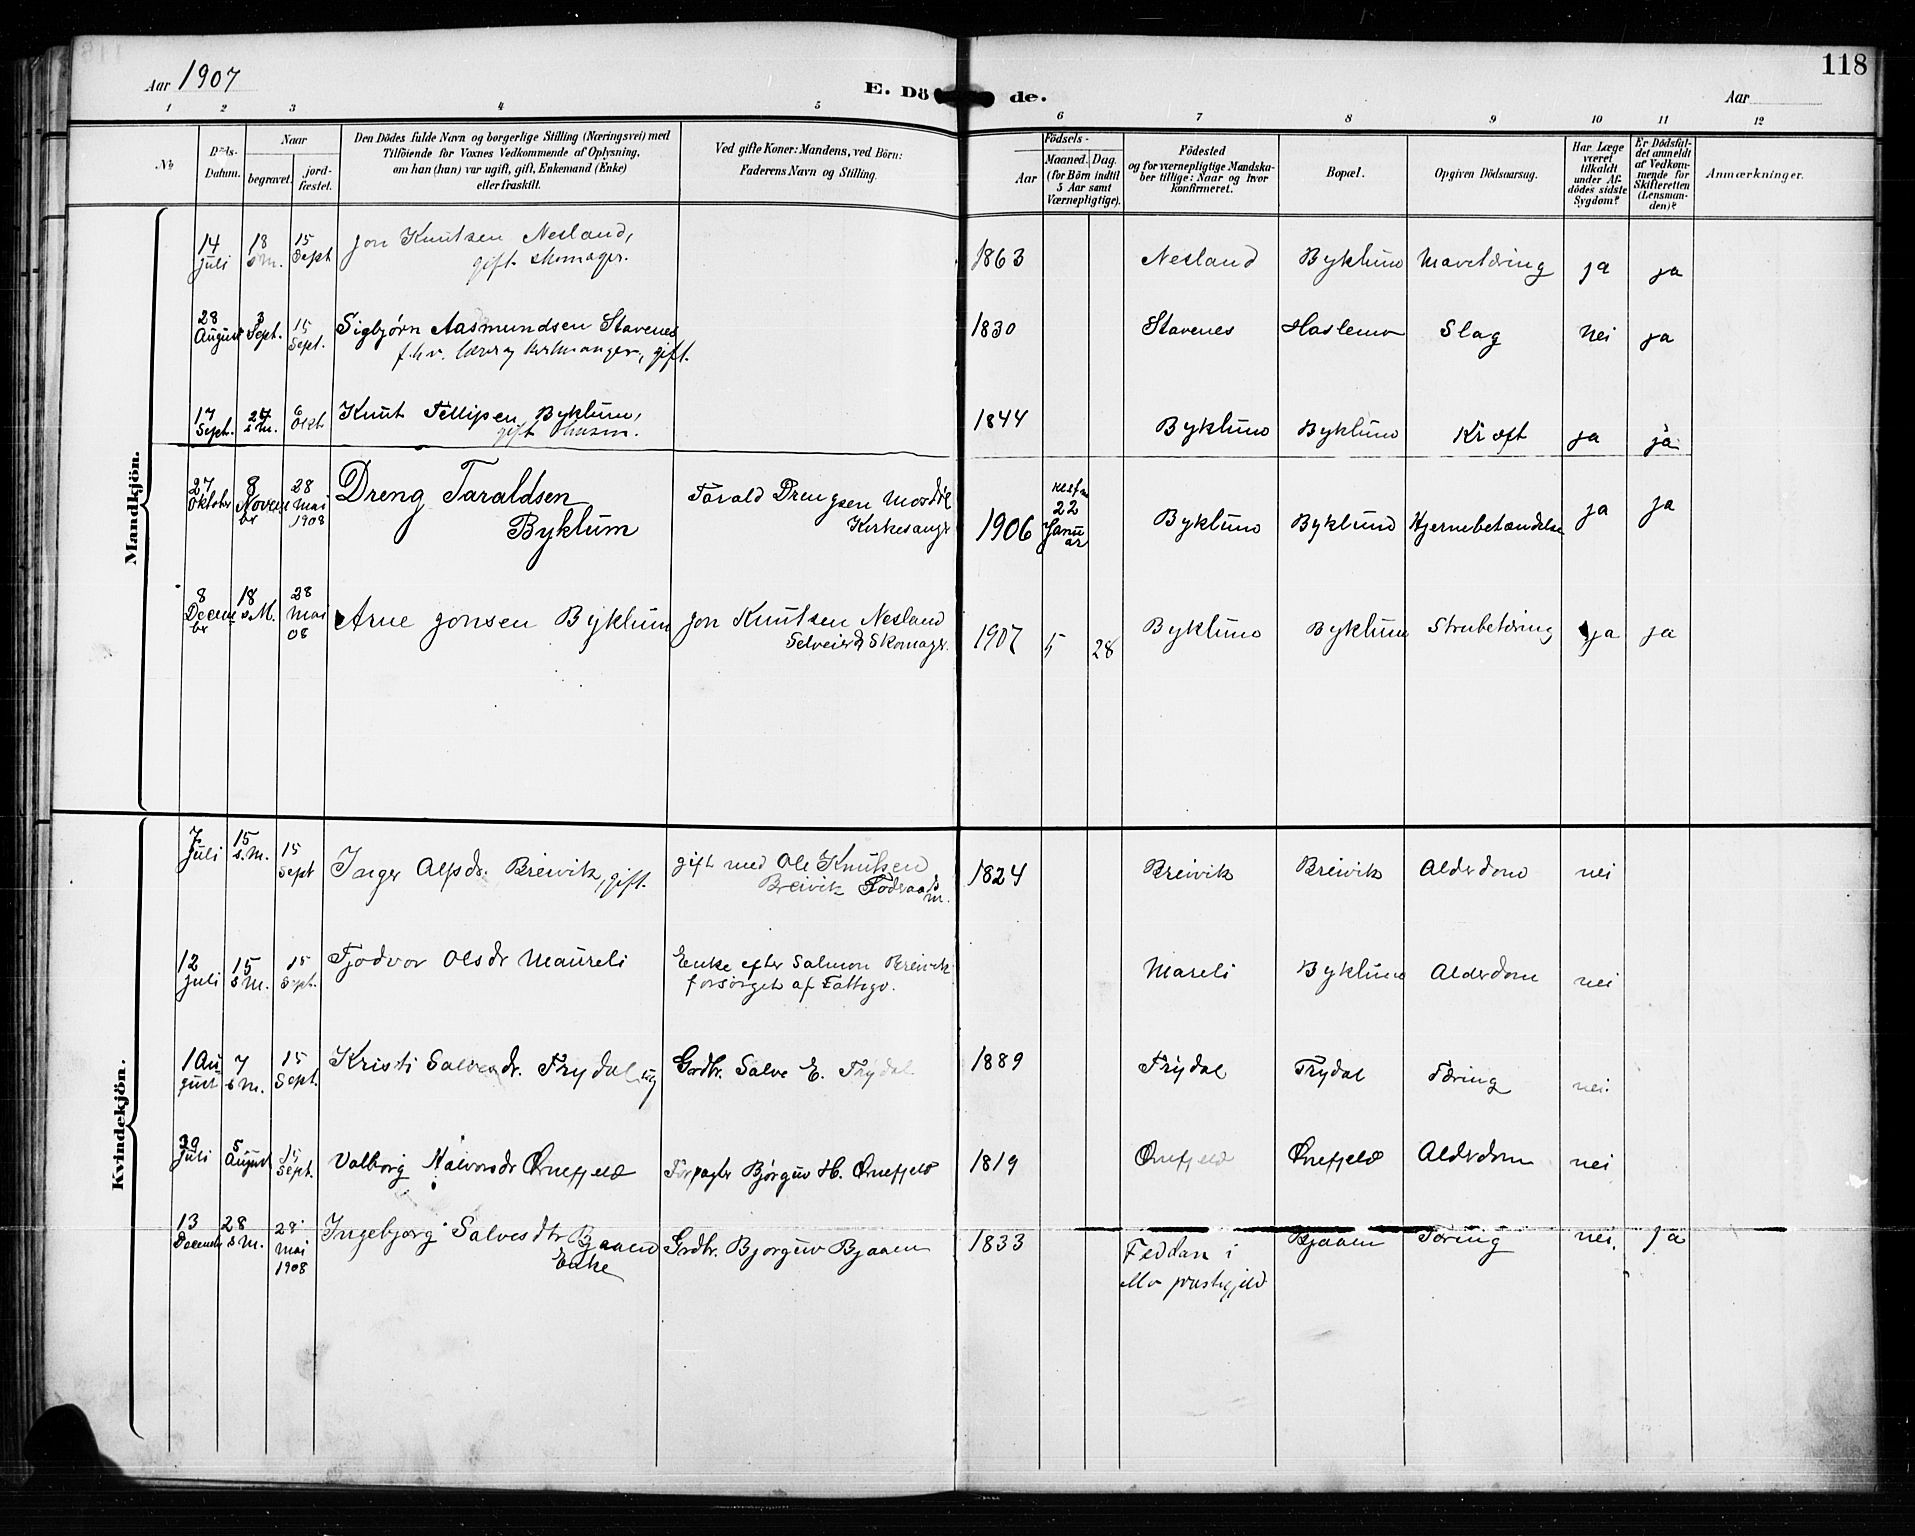 118
Aar 1907
E. Dö de.
Aar
1 2 3 4 5 6 7 8 9 10 11 12
No
Döds-Datum.
Naar
begravet.
jord-fæstet.
Den Dödes fulde Navn og borgerlige Stilling (Næringsvei) med
Tilföiende for Voxnes Vedkommende af Oplysning,
om han (han) var ugift, gift, Enkemand (Enke)
eller fraskilt.
Ved gifte Koner: Mandens, ved Börn:
Faderens Navn og Stilling.
Födsels-
Aar
Maaned. Dag.
(for Börn indtil
5 Aar samt
Værnepligtige).
Födested
og for værnepligtige Mandska-
ber tillige: Naar og hvor
konfirmeret.
Bopæl.
Opgiven Dödsaarsag.
Har Læge
været
tilkaldt
under Af-
dödes sidste
Sygdom?
Er Dödsfal-
det anmeldt
af Vedkom-
mende for
Skifteretten
(Lensman-
den)?
Anmærkninger.
Mandkjön.
14 juli 18 s.M. 15 Sept Jon Knutsen Nesland, 1863 Nesland Byklum Mavetæring ja ja
gift skomager.
28 August 3 Sept. 15 Sept. Sigbjørn Aasmundsen Stavenes 1830 Stavenes Haslemo Slag Nei ja
f.h.v. lærer og kirkesanger, gift.
17 Sept. 27 s.M. 6 Okt Knut Fellipsen Byklum, 1844 Byklum Byklum Kræft ja ja
gift
27 Oktober 8 November 28 Mai 1908 Dreng Taraldsen Tarald Drengsen Mosdøl 1906 22 Januar Byklum Byklum Hjernebetændelse ja ja
Byklum Kirkesanger
8 December 18 s.M. 28 Mai 08 Arne Jonsen Byklum Jon Knutsen Nesland 1907 5 28 Byklum Byklum Strubetæring ja ja
Selveier & Skomager.
Kvindekjön.
7 Juli 15 s.M. 15 Sept Inger Alfsdr. Breivik, gift. gift med Ole Knutsen 1824 Breivik Breivik Alderdom nei
Breivik Föderaadsm.
12 juli 15 s.M. 15 Sept. Tjodvor Olsdr Maureli Enke efter Salmon Breivik Mareli Byklum Alderdom nei
forsörget af Fattigv.
1 August 7 s.M. 15 Sept. Kristi Salvesdr. Trydal ug Grdbr. Salve E. Trydal 1889 Trydal Trydal Tæring nei.
29 Juli 5 August 15 Sept. Valborg Halvorsdr Ørnefjeld Forpagter Bjørguv H. Ørnefjeld 1819 Ørnefjeld Ørnefjeld Alderdom nei
13 December 28 s.M. 28 Mai 1908 Ingebjorg Salvesdtr Bjaaen Grdbr. Bjorguv Bjaaen 1833 Feddan i Bjaaen Tæring nei. ja
Enke præstegjeld